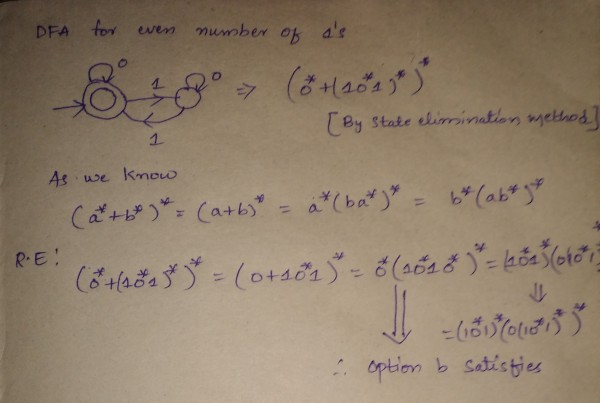 DFA for even number of 1's
0 1 0 ⇒ (0* + (10*1)*)*
1 [By state elimination method]
As we know
(a* + b*)* = (a+b)* = a*(ba*)* = b*(ab*)*
R.E! (0* + (10*1)*)* = (0+10*1)* = 0*(10*10*)* = (10*1)*(0(10*1)*
= (10*1)*(0(10*1)*)*
∴ option b satisfies